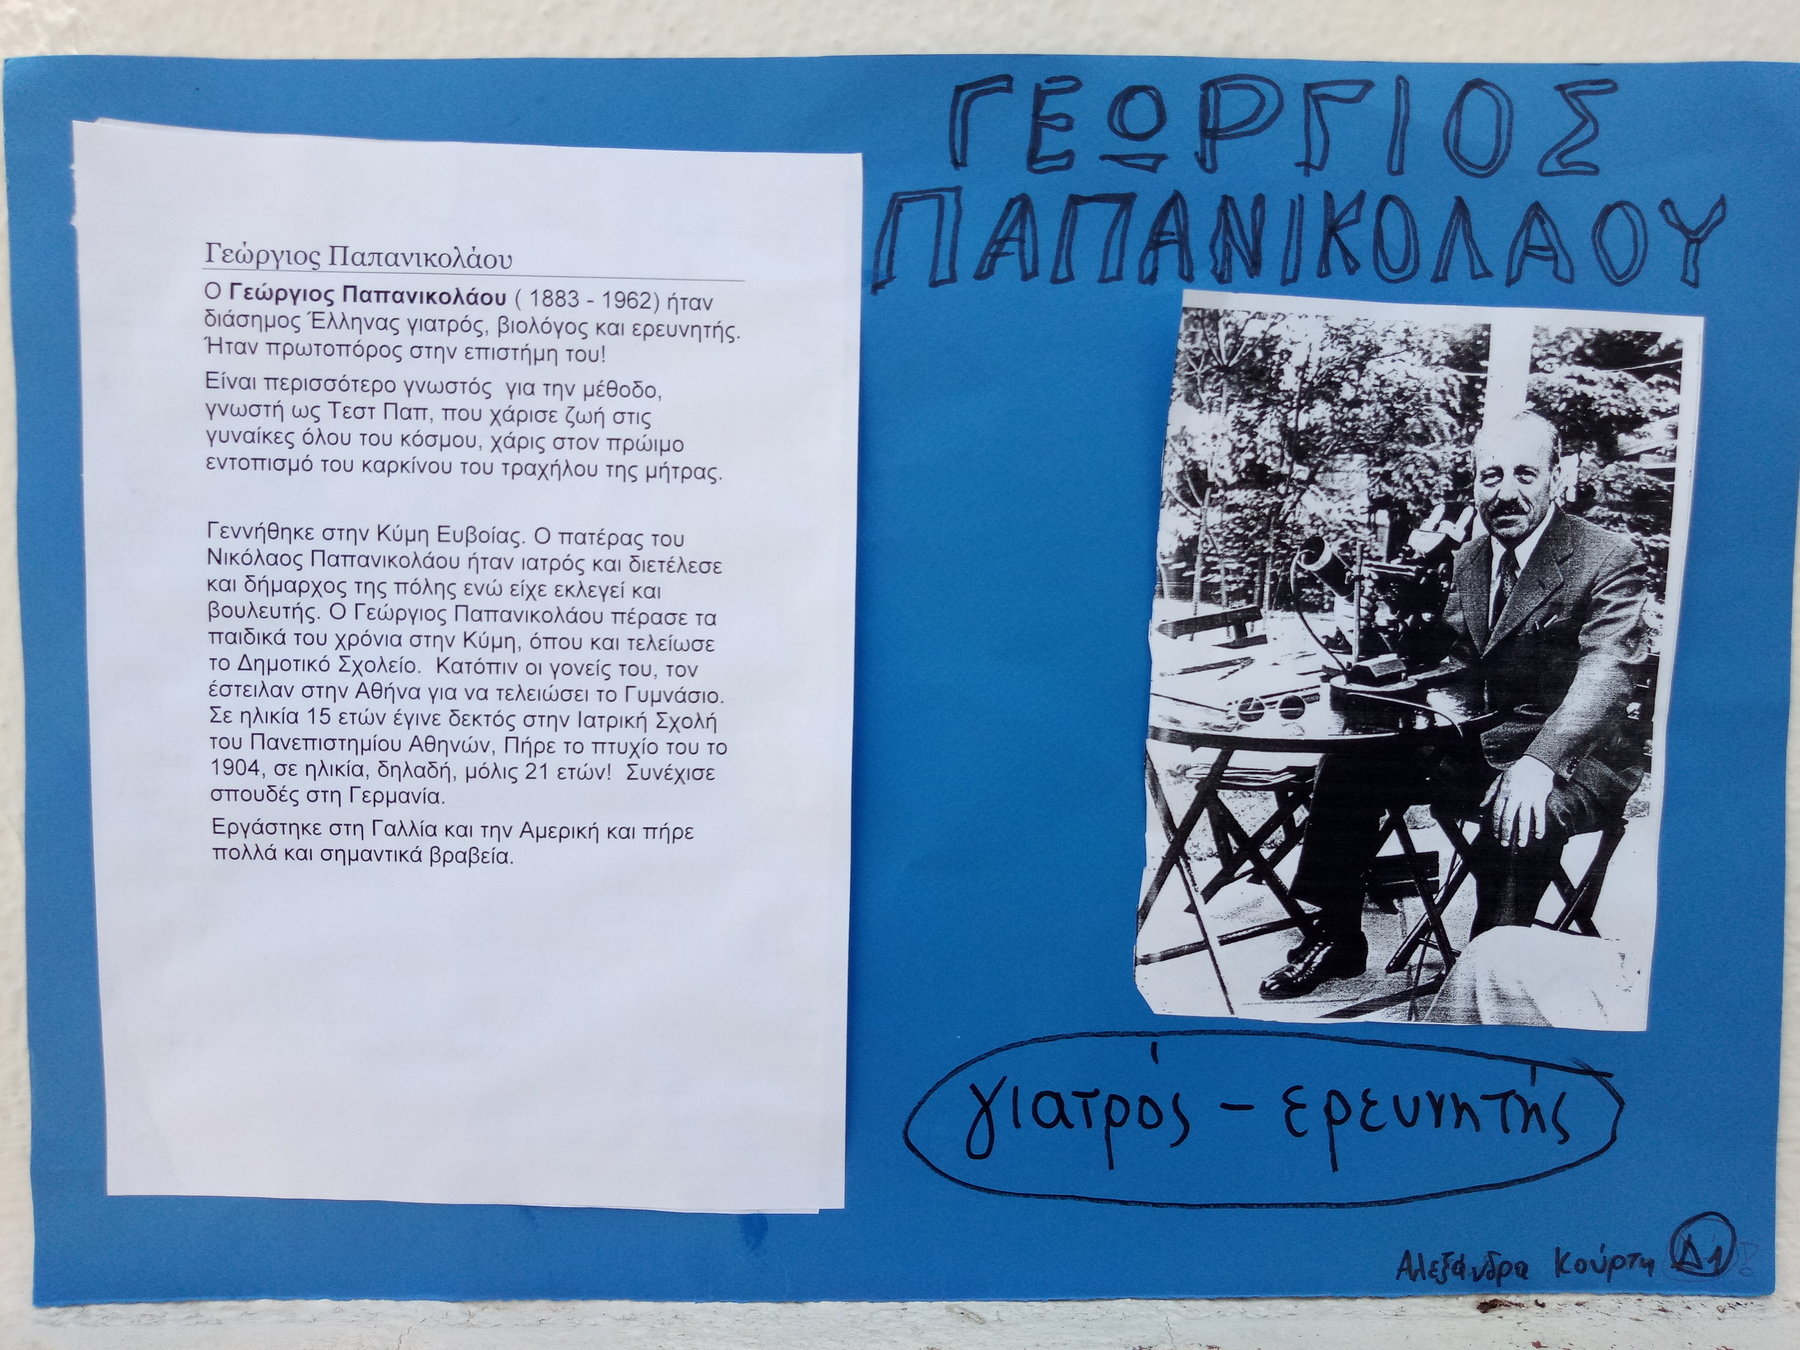 ΓΕΩΡΓΙΟΣ
ΠΑΠΑΝΙΚΟΛΑΟΥ
Γεώργιος Παπανικολάου
Ο Γεώργιος Παπανικολάου ( 1883 - 1962) ήταν
διάσημος Έλληνας γιατρός, βιολόγος και ερευνητής.
Ήταν πρωτοπόρος στην επιστήμη του!
Είναι περισσότερο γνωστός  για την μέθοδο,
γνωστή ως Τεστ Παπ, που χάρισε ζωή στις
γυναίκες όλου του κόσμου, χάρις στον πρώιμο
εντοπισμό του καρκίνου του τραχήλου της μήτρας.
Γεννήθηκε στην Κύμη Ευβοίας. Ο πατέρας του
Νικόλαος Παπανικολάου ήταν ιατρός και διετέλεσε
και δήμαρχος της πόλης ενώ είχε εκλεγεί και
βουλευτής. Ο Γεώργιος Παπανικολάου πέρασε τα
παιδικά του χρόνια στην Κύμη, όπου και τελείωσε
το Δημοτικό Σχολείο.  Κατόπιν οι γονείς του, τον
έστειλαν στην Αθήνα για να τελειώσει το Γυμνάσιο.
Σε ηλικία 15 ετών έγινε δεκτός στην Ιατρική Σχολή
του Πανεπιστημίου Αθηνών, Πήρε το πτυχίο του το
1904, σε ηλικία, δηλαδή, μόλις 21 ετών!  Συνέχισε
σπουδές στη Γερμανία.
Εργάστηκε στη Γαλλία και την Αμερική και πήρε
πολλά και σημαντικά βραβεία.
γιατρός - ερευνητής
Αλεξάνδρα Κούρτη Δ1